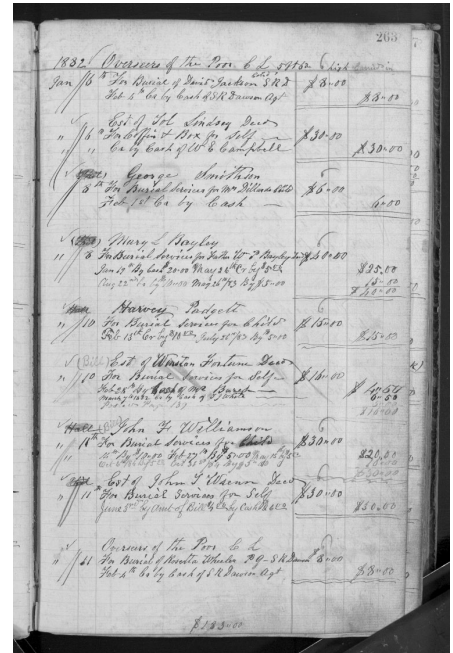 263
1882 Overseers of the Poor C. L. 59th St
Jan 6th For Burial of David Jackson Cold S.R.D $8.00
Feb 4th Cr by Cash of S R Dawson Agt $8.00
Est of Lindsey Decd
" 6" For Coffin & Box for Self $30.00
" " Cr by Cash of W E Campbell $30.00
George Smithson
8th For Burial Services for Wm Child $6.00
Feb 1st Cr by Cash 6.00
Mary L Bayley
" 8 For Burial Services for Father Wm P Bayley $40.00
Jan 13th By Cash 20.00 May 26th Cr By $5 $25.00
Aug 22nd Cr by 10.00 May 26/83 By $5.00 15.00
$40.00
Harvey Padgett
" 10 For Burial Services for Child $15.00
Feb 15th Cr by $10 July 26/83 By 5.00 $15.00
(Bill) Est of Winston Fortune Decd
" 10 For Burial Services for Self $16.00
Feb 28th By Cash of Mr
March 7th 1882 Cr by Cash of White 6.50
$16.00
John F Williamson
" 11th For Burial Services for Child $30.00
By 10.00 Feb 27th By 5.00 $20.00
Est of John T Decd
" 11th For Burial Services for Self $30.00
June 3rd by Amt of Bill by Cash $30.00
Overseers of the Poor C L
" 21 For Burial of Rosella Wheeler S R Dawson $8.00
Feb 4th Cr by Cash of S R Dawson Agt $8.00
$183.00